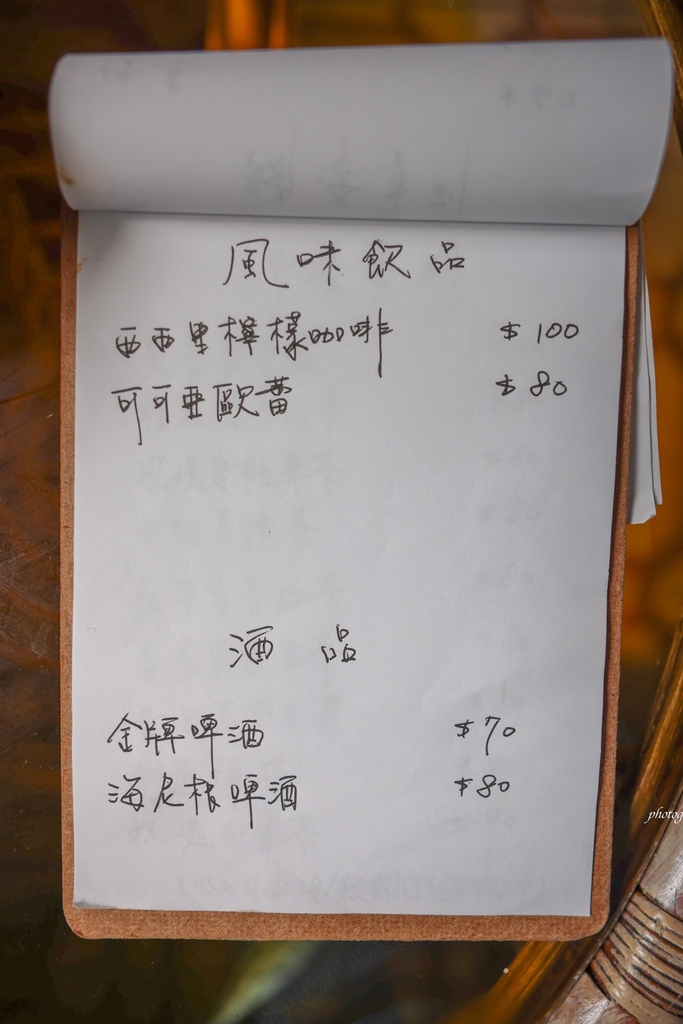 風味飲品
西西里檸檬咖啡 $100
可可亞歐蕾 $80
酒品
金牌啤酒 $70
海尼根啤酒 $80
photog